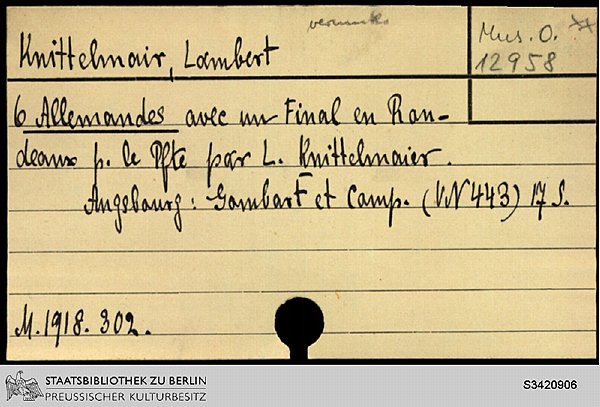 Mus. O.
12958
Knittelmair, Lambert
6 Allemandes avec un Final en Ron-
deaux p. le Pfte par L. Knittelmaier.
Augsbourg: Gombart et Comp. (VN 443) 17 S.
M. 1918. 302.
STAATSBIBLIOTHEK ZU BERLIN
PREUSSISCHER KULTURBESITZ
S3420906